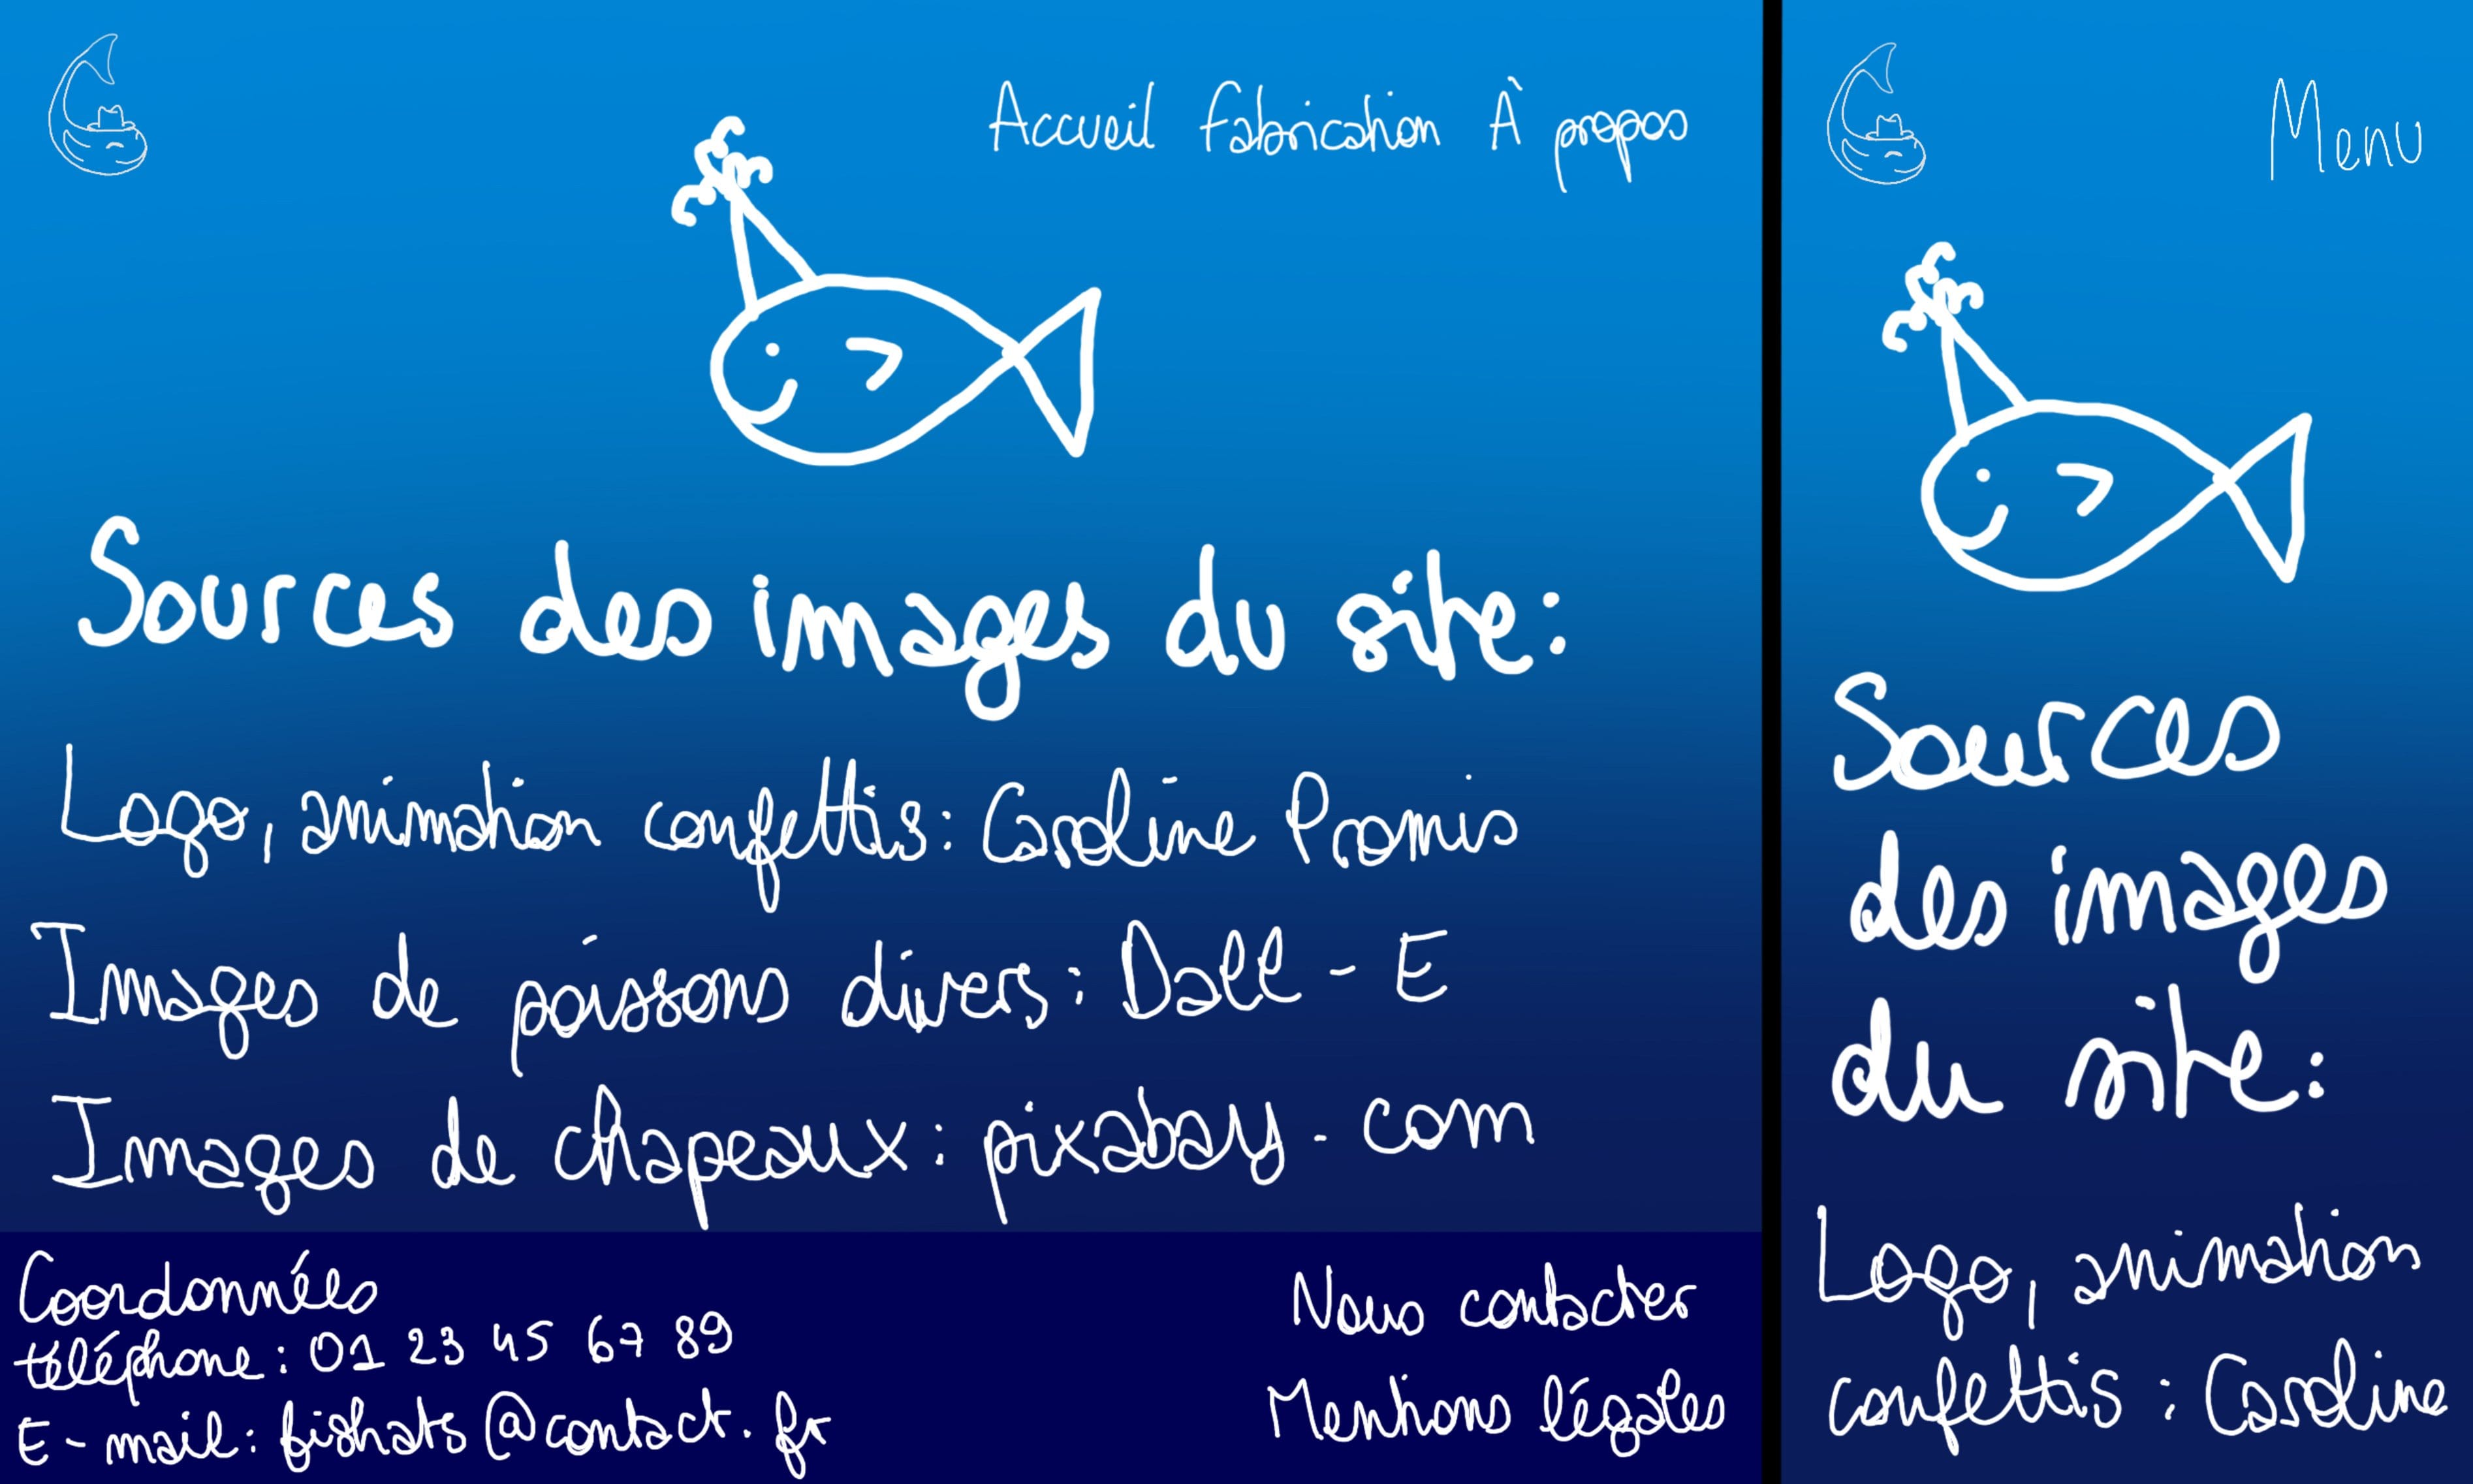 Accueil Fabrication À propos
Sources des images du site:
Logo, animation confettis: Caroline Promis
Images de poissons divers: Dall-E
Images de chapeaux: pixabay.com
Coordonnées
téléphone: 01 23 45 67 89
E-mail: fishats@contact.fr
Nous contacter
Mentions légales
Menu
Sources
des images
du site:
Logo, animation
confettis : Caroline